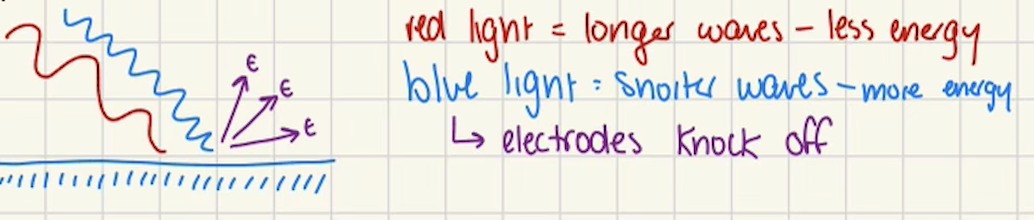 red light = longer waves - less energy
blue light = shorter waves - more energy
↳ electrodes knock off
E
E
E